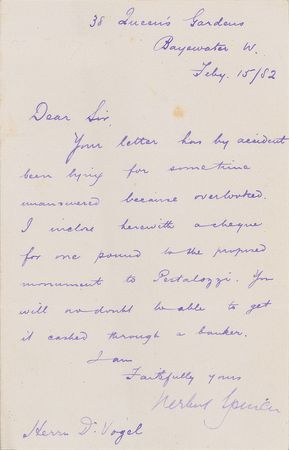 38 Queen's Gardens
Bayswater W.
Feby. 15/82
Dear Sir
Your letter has by accident
been lying for sometime
unanswered because overlooked.
I inclose herewith a cheque
for one pound to the proposed
monument to Pestalozzi. You
will no doubt be able to get
it cashed through a banker.
I am
Faithfully yours
Herbert Spencer
Herrn Dr. Vogel